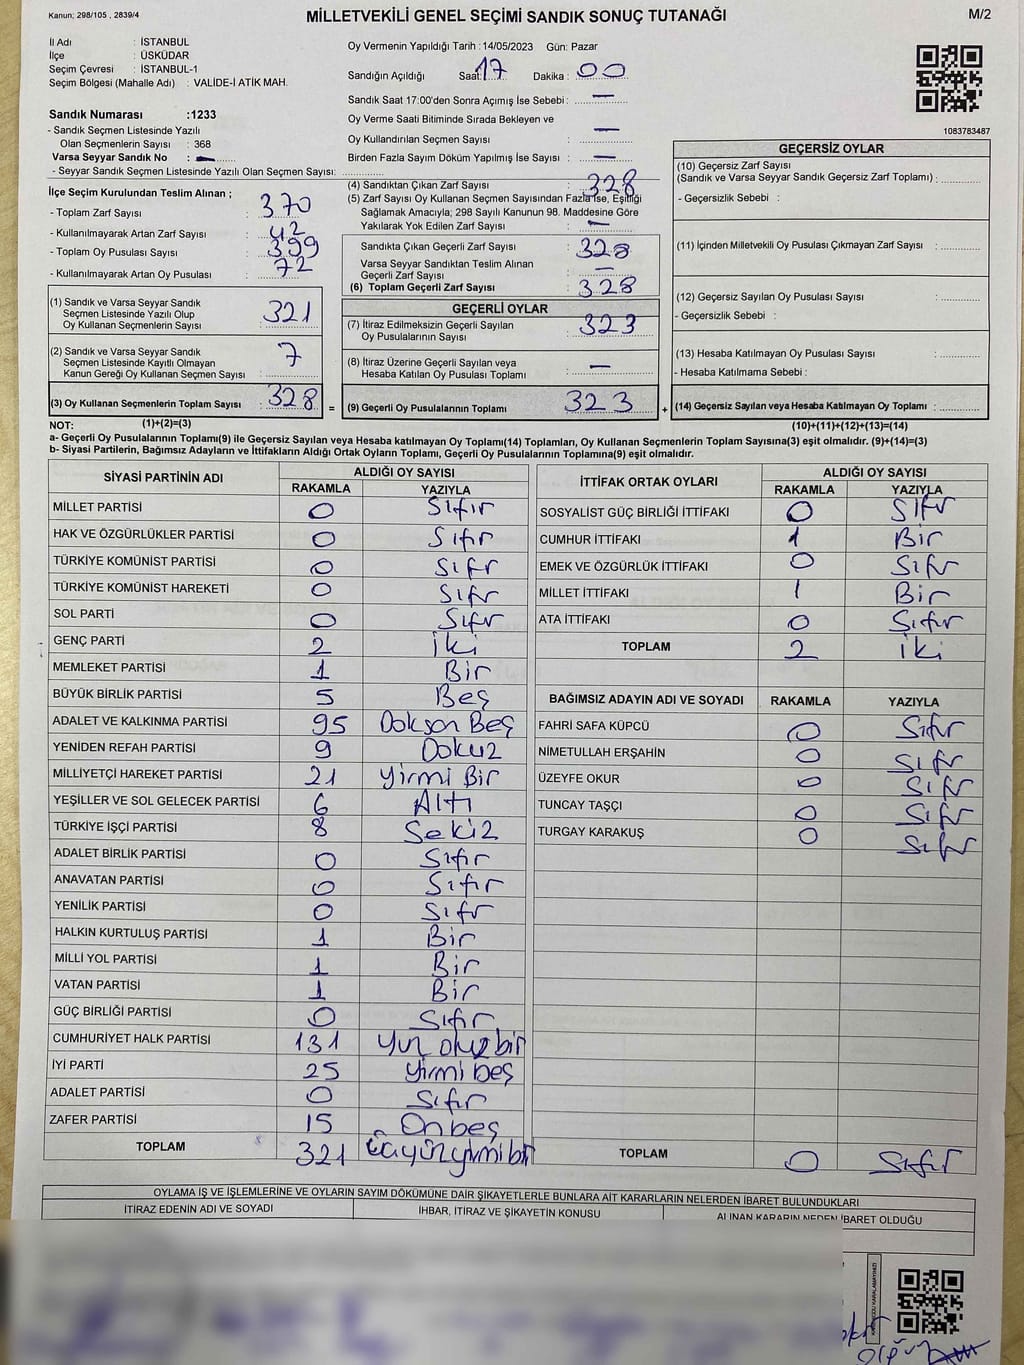 Kanun; 298/105 , 2839/4
MİLLETVEKİLİ GENEL SEÇİMİ SANDIK SONUÇ TUTANAĞI
M/2
İl Adı : İSTANBUL
İlçe : ÜSKÜDAR
Seçim Çevresi : İSTANBUL-1
Seçim Bölgesi (Mahalle Adı) : VALİDE-İ ATİK MAH.
Sandık Numarası :1233
- Sandık Seçmen Listesinde Yazılı
Olan Seçmenlerin Sayısı : 368
Varsa Seyyar Sandık No : —
- Seyyar Sandık Seçmen Listesinde Yazılı Olan Seçmen Sayısı:
Oy Vermenin Yapıldığı Tarih : 14/05/2023 Gün: Pazar
Sandığın Açıldığı Saat: 17 Dakika : 00
Sandık Saat 17:00'den Sonra Açımış İse Sebebi : —
Oy Verme Saati Bitiminde Sırada Bekleyen ve
Oy Kullandırılan Seçmen Sayısı : —
Birden Fazla Sayım Döküm Yapılmış İse Sayısı : —
1083783487
İlçe Seçim Kurulundan Teslim Alınan ;
- Toplam Zarf Sayısı : 370
- Kullanılmayarak Artan Zarf Sayısı : 42
- Toplam Oy Pusulası Sayısı : 399
- Kullanılmayarak Artan Oy Pusulası : 72
(1) Sandık ve Varsa Seyyar Sandık
Seçmen Listesinde Yazılı Olup
Oy Kullanan Seçmenlerin Sayısı : 321
(2) Sandık ve Varsa Seyyar Sandık
Seçmen Listesinde Kayıtlı Olmayan
Kanun Gereği Oy Kullanan Seçmen Sayısı : 7
(3) Oy Kullanan Seçmenlerin Toplam Sayısı : 328
=
(4) Sandıktan Çıkan Zarf Sayısı : 328
(5) Zarf Sayısı Oy Kullanan Seçmen Sayısından Fazla İse, Eşitliği
Sağlamak Amacıyla; 298 Sayılı Kanunun 98. Maddesine Göre
Yakılarak Yok Edilen Zarf Sayısı : —
Sandıkta Çıkan Geçerli Zarf Sayısı : 328
Varsa Seyyar Sandıktan Teslim Alınan
Geçerli Zarf Sayısı : —
(6) Toplam Geçerli Zarf Sayısı : 328
GEÇERLİ OYLAR
(7) İtiraz Edilmeksizin Geçerli Sayılan
Oy Pusulalarının Sayısı : 323
(8) İtiraz Üzerine Geçerli Sayılan veya
Hesaba Katılan Oy Pusulası Toplamı : —
(9) Geçerli Oy Pusulalarının Toplamı : 323
+
GEÇERSİZ OYLAR
(10) Geçersiz Zarf Sayısı
(Sandık ve Varsa Seyyar Sandık Geçersiz Zarf Toplamı) :
- Geçersizlik Sebebi :
(11) İçinden Milletvekili Oy Pusulası Çıkmayan Zarf Sayısı :
(12) Geçersiz Sayılan Oy Pusulası Sayısı :
- Geçersizlik Sebebi :
(13) Hesaba Katılmayan Oy Pusulası Sayısı :
- Hesaba Katılmama Sebebi :
(14) Geçersiz Sayılan veya Hesaba Katılmayan Oy Toplamı :
NOT: (1)+(2)=(3)
(10)+(11)+(12)+(13)=(14)
a- Geçerli Oy Pusulalarının Toplamı(9) ile Geçersiz Sayılan veya Hesaba katılmayan Oy Toplamı(14) Toplamları, Oy Kullanan Seçmenlerin Toplam Sayısına(3) eşit olmalıdır. (9)+(14)=(3)
b- Siyasi Partilerin, Bağımsız Adayların ve İttifakların Aldığı Ortak Oyların Toplamı, Geçerli Oy Pusulalarının Toplamına(9) eşit olmalıdır.
SİYASİ PARTİNİN ADI ALDIĞI OY SAYISI
RAKAMLA YAZIYLA
MİLLET PARTİSİ 0 Sıfır
HAK VE ÖZGÜRLÜKLER PARTİSİ 0 Sıfır
TÜRKİYE KOMÜNİST PARTİSİ 0 Sıfr
TÜRKİYE KOMÜNİST HAREKETİ 0 Sıfr
SOL PARTİ 0 Sıfr
GENÇ PARTİ 2 İki
MEMLEKET PARTİSİ 1 Bir
BÜYÜK BİRLİK PARTİSİ 5 Beş
ADALET VE KALKINMA PARTİSİ 95 Doksan Beş
YENİDEN REFAH PARTİSİ 9 Dokuz
MİLLİYETÇİ HAREKET PARTİSİ 21 Yirmi Bir
YEŞİLLER VE SOL GELECEK PARTİSİ 6 Altı
TÜRKİYE İŞÇİ PARTİSİ 8 Sekiz
ADALET BİRLİK PARTİSİ 0 Sıfır
ANAVATAN PARTİSİ 0 Sıfır
YENİLİK PARTİSİ 0 Sıfr
HALKIN KURTULUŞ PARTİSİ 1 Bir
MİLLİ YOL PARTİSİ 1 Bir
VATAN PARTİSİ 1 Bir
GÜÇ BİRLİĞİ PARTİSİ 0 Sıfır
CUMHURİYET HALK PARTİSİ 131 Yüz otuz bir
İYİ PARTİ 25 Yirmi beş
ADALET PARTİSİ 0 Sıfır
ZAFER PARTİSİ 15 Onbeş
TOPLAM 321 üçyüzyirmibir
İTTİFAK ORTAK OYLARI ALDIĞI OY SAYISI
RAKAMLA YAZIYLA
SOSYALİST GÜÇ BİRLİĞİ İTTİFAKI 0 Sıfr
CUMHUR İTTİFAKI 1 Bir
EMEK VE ÖZGÜRLÜK İTTİFAKI 0 Sıfr
MİLLET İTTİFAKI 1 Bir
ATA İTTİFAKI 0 Sıfır
TOPLAM 2 İki
BAĞIMSIZ ADAYIN ADI VE SOYADI RAKAMLA YAZIYLA
FAHRİ SAFA KÜPCÜ 0 Sıfır
NİMETULLAH ERŞAHİN 0 Sıfr
ÜZEYFE OKUR 0 Sıfr
TUNCAY TAŞÇI 0 Sıfr
TURGAY KARAKUŞ 0 Sıfr
TOPLAM 0 Sıfır
OYLAMA İŞ VE İŞLEMLERİNE VE OYLARIN SAYIM DÖKÜMÜNE DAİR ŞİKAYETLERLE BUNLARA AİT KARARLARIN NELERDEN İBARET BULUNDUKLARI
İTİRAZ EDENİN ADI VE SOYADI İHBAR, İTİRAZ VE ŞİKAYETİN KONUSU ALINAN KARARIN NEDEN İBARET OLDUĞU